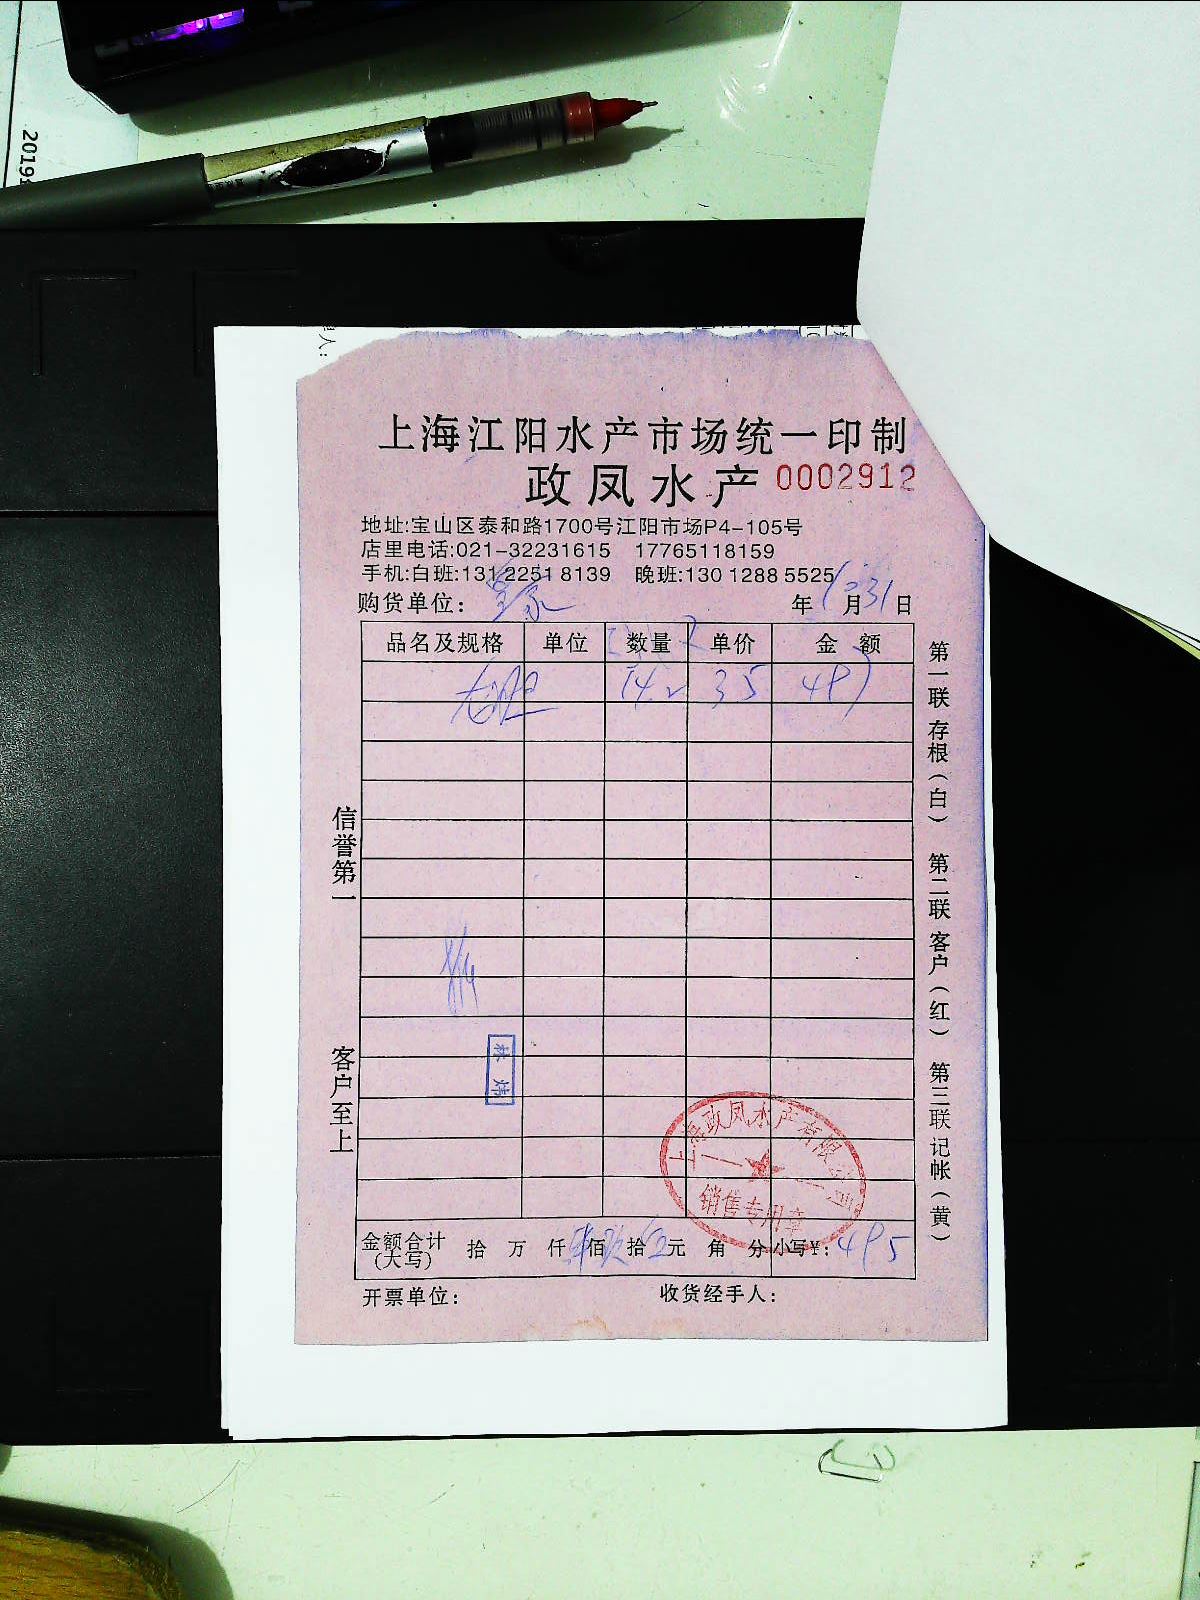 2019
人:
上海江阳水产市场统一印制
政凤水产 0002912
地址:宝山区泰和路1700号江阳市场P4-105号
店里电话:021-32231615 17765118159
手机:白班:131 2251 8139 晚班:130 1288 5525
购货单位: 皇家 年10月31日
品名及规格 单位 数量 单价 金 额
35
信誉第一
客户至上
第一联 存根(白) 第二联 客户(红) 第三联 记帐(黄)
林炜
上海政凤水产有限公司
销售专用章
金额合计(大写) 拾 万 仟 佰 拾 元 角 分 小写¥: 495
开票单位: 收货经手人: